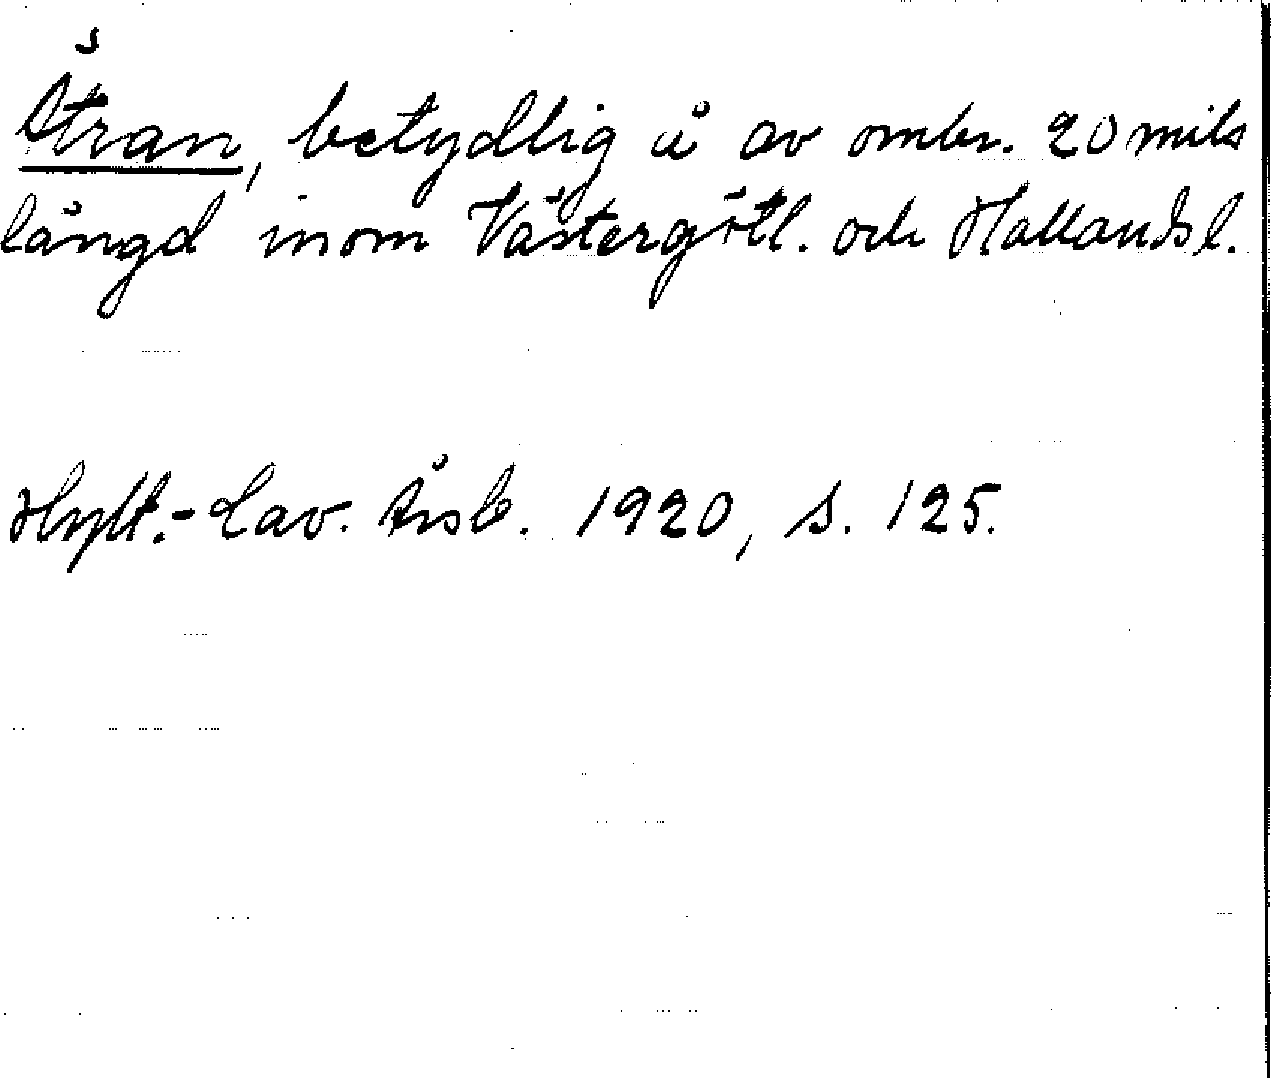 Ätran, betydlig å av ombr. 20 mils
längd inom Västergötl. och Hallands l.
Hylt.-Cav. Årsb. 1920, s. 125.